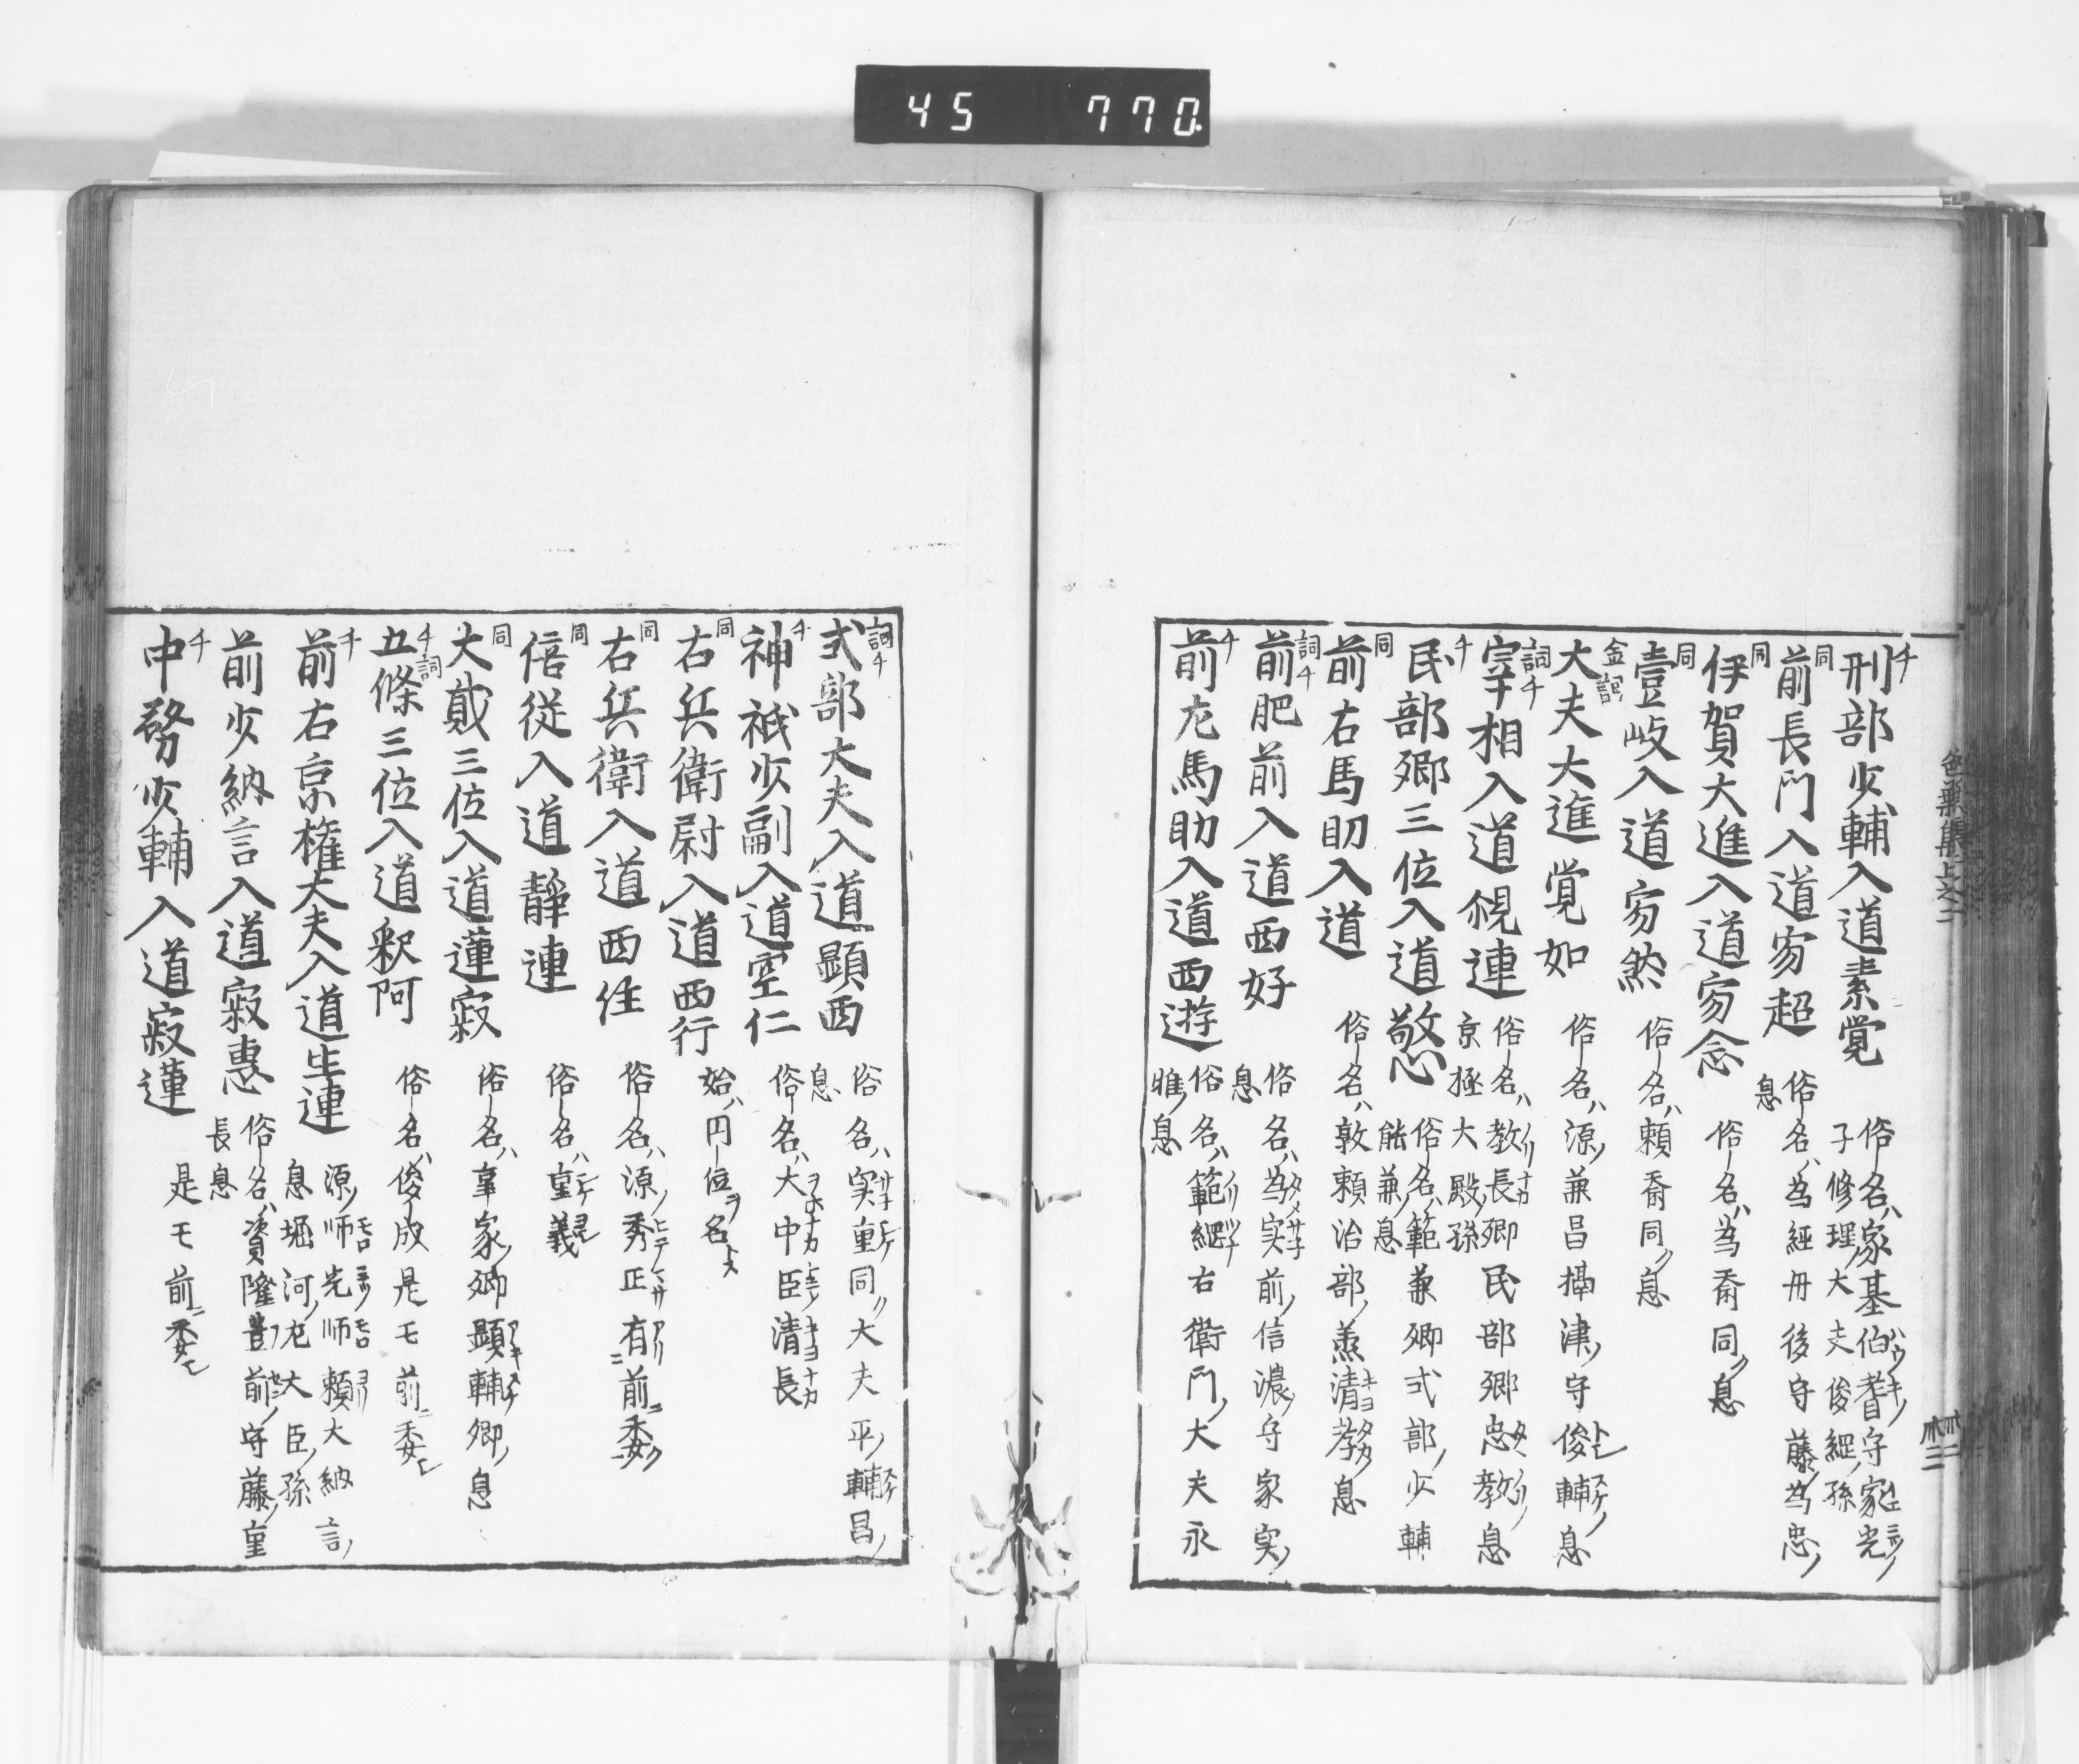 45 770
色葉集上之二
チ 刑部少輔入道素覚 俗名ハ家基伯耆守家光ノ
子修理ノ大夫俊綱ノ孫
同 前長門入道寂超 俗名ハ為経丹後守藤ノ為忠ノ
息
同 伊賀大進入道寂念 俗名ハ為斎同ク息
同 壹岐入道寂然 俗名ハ頼斎同ク息
金詞 大夫大進覚如 俗名ハ源ノ兼昌摂津ノ守俊輔ノ息
詞チ 宰相入道観連 俗名ハ教長卿民部卿忠教ノ息
京極大殿ノ孫
チ 民部卿三位入道 俗名ハ範兼卿式部ノ少輔
能兼ノ息
同 前右馬助入道 俗名ハ敦頼治部ノ丞清孝ノ息
詞チ 前肥前入道西好 俗名ハ為実前ノ信濃ノ守家実ノ
息
チ 前左馬助入道西遊 俗名ハ範綱右衛門ノ大夫永
雅ノ息
詞チ 式部大夫入道顕西 俗名ハ実重同ク大夫平ノ輔昌ノ
息
チ 神祇少副入道空仁 俗名ハ大中臣清長
同 右兵衛尉入道西行 始ハ円位ヲ名ト
同 右兵衛入道西住 俗名ハ源ノ秀正有前ニ委ク
同 倍従入道静連 俗名ハ重義
同 大貮三位入道蓮寂 俗名ハ重家ノ卿顕輔卿ノ息
チ詞 五條三位入道釈阿 俗名ハ俊成是モ前ニ委シ
チ 前右京権大夫入道生連 源ノ師光師頼大納言ノ
息堀河ノ左大臣ノ孫
前少納言入道寂惠 俗名ハ資隆豊前ノ守藤ノ重
長息
チ 中務少輔入道寂蓮 是モ前ニ委シ